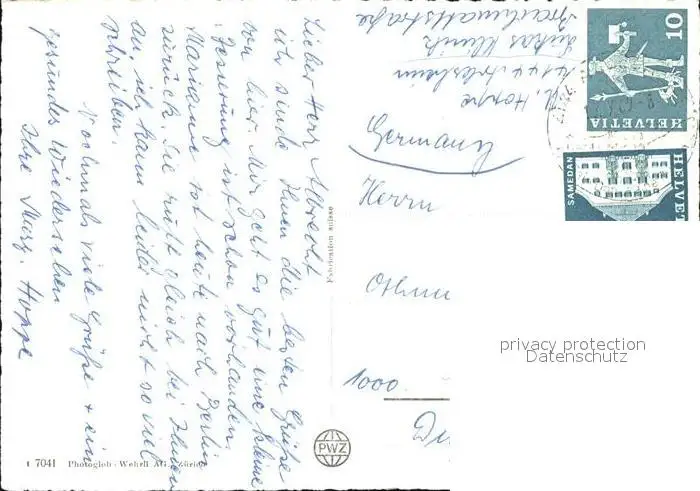 Lieber Herr Albrecht
ich sende Ihnen die besten Grüße
von hier. Mir geht es gut eine kleine
Besserung ist schon vorhanden.
Marianne ist heute nach Berlin
zurück. Sie ruft gleich bei Ihnen
an, ich kann leider nicht so viel
schreiben.
Nochmals viele Grüße + ein
gesundes Wiedersehen
Ihre Marg. Hoppe
1 7041 Photoglob-Wehrli AG Zürich
Fabrication suisse
PWZ
Hoppe
4144 Arlesheim
Lukas Klinik
Brachmattstraße
Germany
Herrn
1000
10
HELVETIA
SAMEDAN
HELVET
privacy protection
Datenschutz